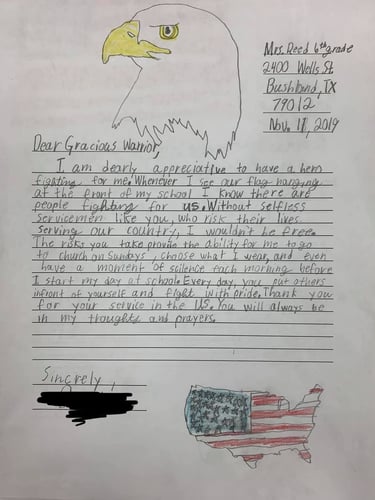 Mrs. Reed 6th grade
2400 Wells St.
Bushland, TX
79012
Nov. 11, 2019
Dear Gracious Warrior,
I am dearly appreciative to have a hero
fighting for me. Whenever I see our flag hanging
at the front of my school I know there are
people fighting for us. Without selfless
servicemen like you, who risk their lives
serving our country, I wouldn't be free.
The risks you take provide the ability for me to go
to church on Sundays, choose what I wear, and even
have a moment of scilence each morning before
I start my day at school. Every day, you put others
infront of yourself and fight with pride. Thank you
for your service in the US. You will always be
in my thoughts and prayers.
Sincrely,